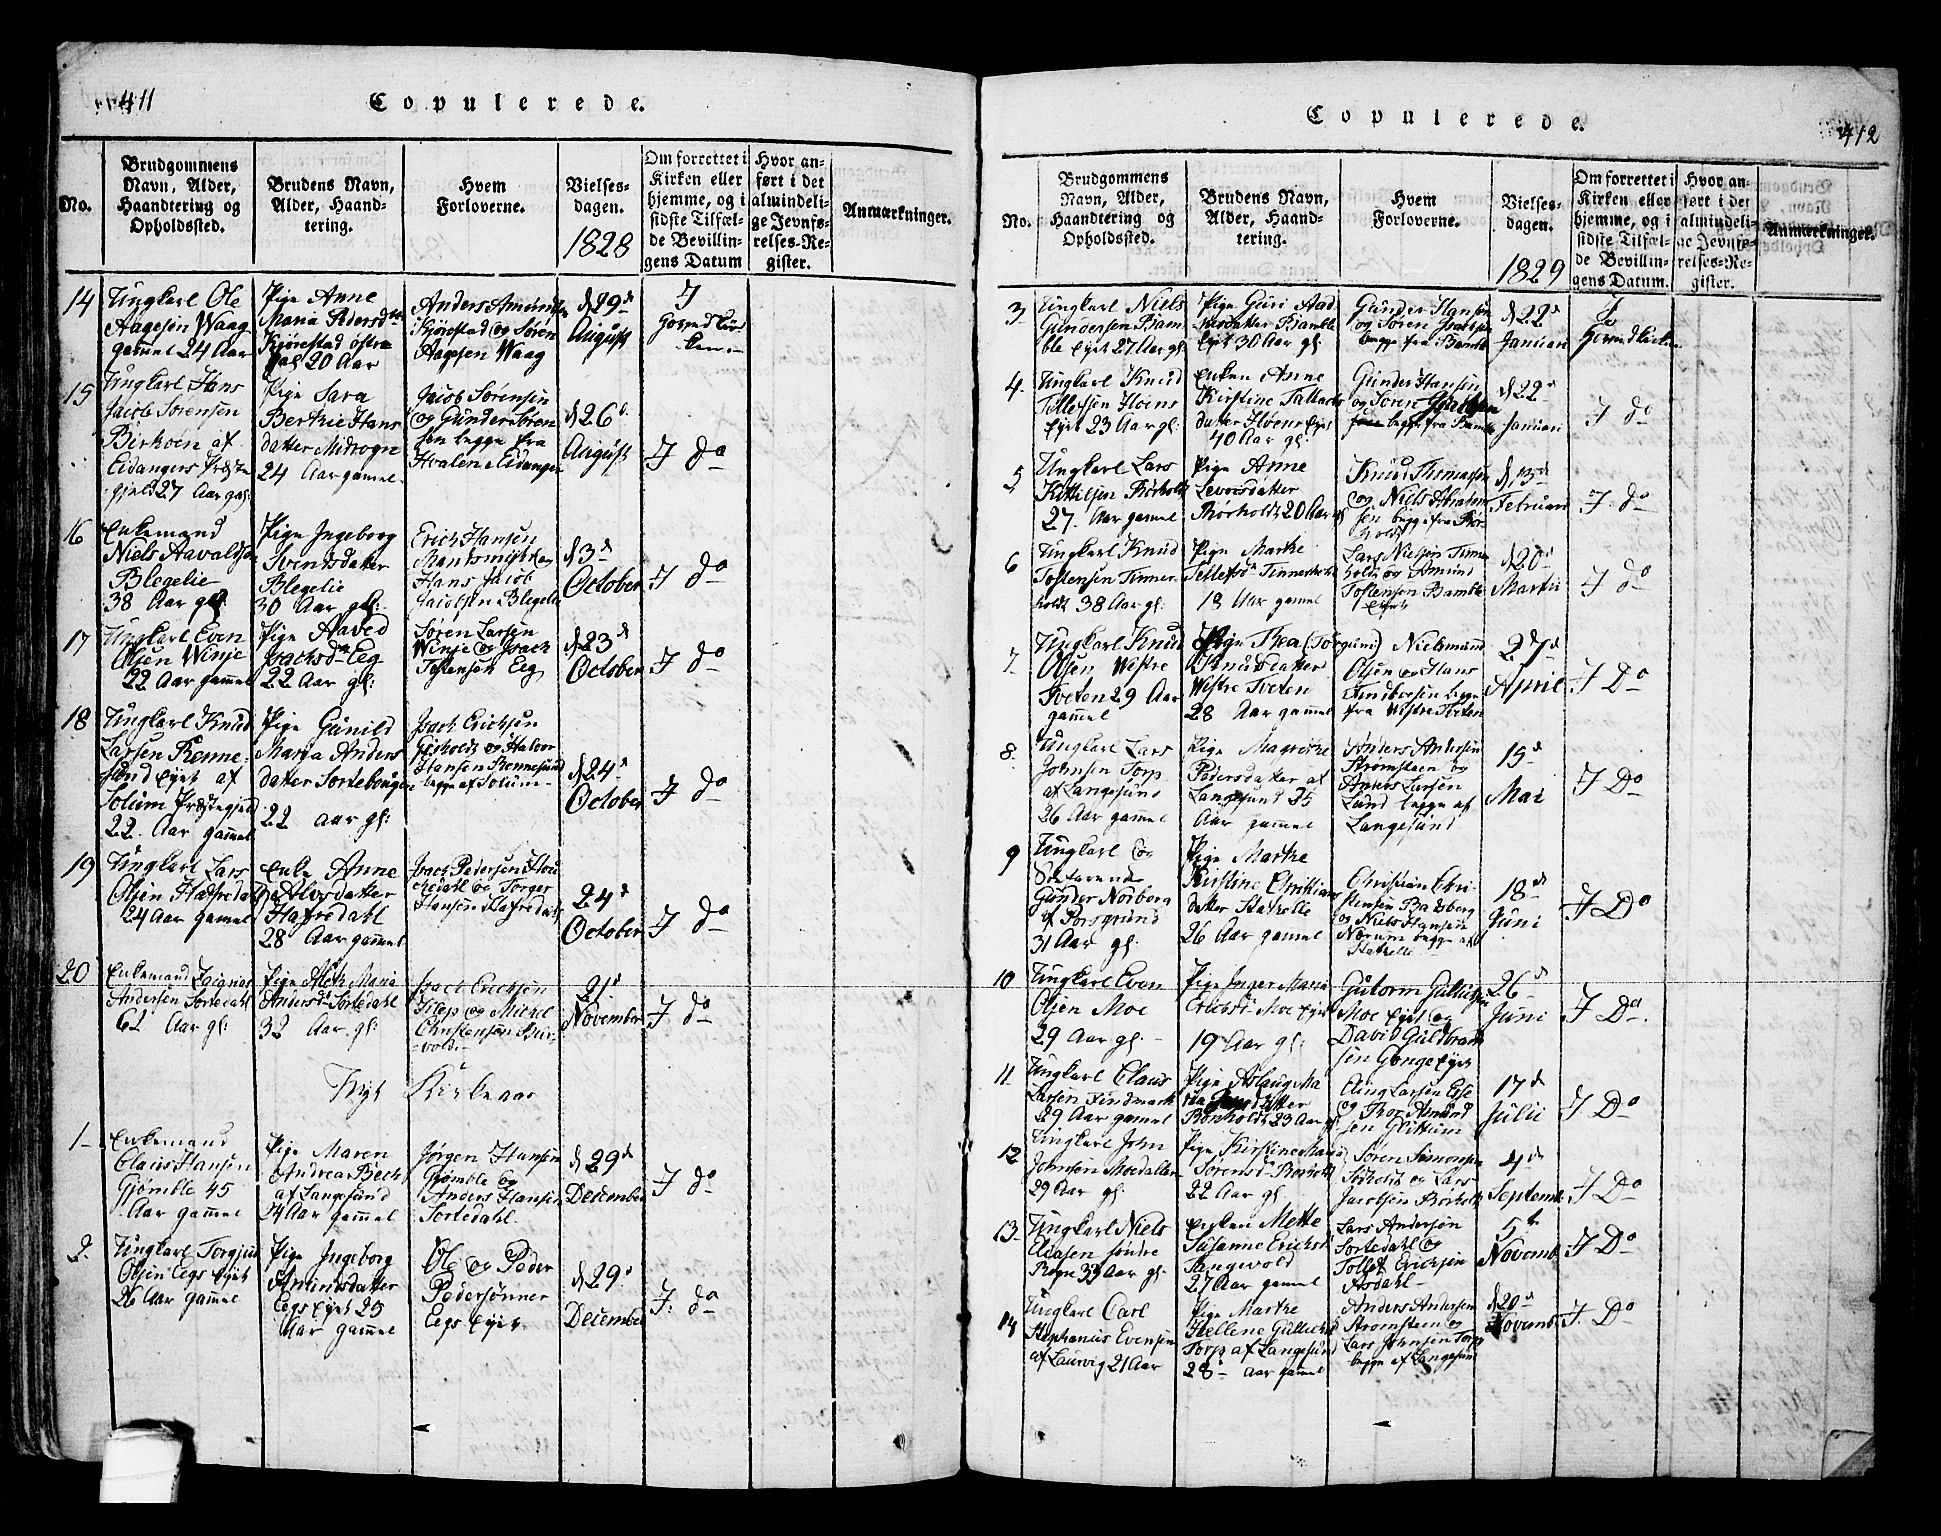 411
Copulerede.
No.
Brudgommens
Navn, Alder,
Haandtering og
Opholdssted.
Brudens Navn,
Alder, Haand-
tering.
Hvem
Forloverne.
Vielses-
dagen.
1828
Om forrettet i
Kirken eller
hjemme, og i
sidste Tilfæl-
de Bevillin-
gens Datum
Hvor an-
ført i det
almindeli-
ge Jevnfø-
relses-Re-
gister.
Anmærkninger.
14
Ungkarl Ole
Aagesen Waag
gammel 24 Aar
Pige Anne
Maria Pedersdtr
Kjørestad østre
20 Aar
Anders Amunds
Kjørestad og Søren
Aagesen Waag
d 29d
August
I
Hovedkir
ken
15
Ungkarl Hans
Jacob Sørensen
Birkoen af
Eidangers Præste
gjeld 27 Aar gl:
Pige Sara
Bertie Hans
datter Midrogn
24 Aar gammel
Jacob Sørensen
og Gunder Søren
sen begge fra
Hvalen i Eidanger
d 26d
August
I do
16
Enkemand
Niels Aavaldsen
Blegelie
38 Aar gl:
Pige Ingeborg
Svendsdatter
Blegelie
30 Aar gl:
Erich Hansen
og
Hans Jacob
Jacobsen Blegelie
d 3d
October
I do
17
Ungkarl Even
Olsen Winje
22 Aar gammel
Pige Aaved
Isachsdr Eeg
22 Aar gl:
Søren Larsen
Winje og Isach
Tostensen Eeg
d 23d
October
I do
18
Ungkarl Knud
Larsen Renne-
sund Eyet af
Solum Præstegjeld
22 Aar gammel
Pige Gunild
Maria Anders
datter Sortebougen
22 aar gl:
Isach Ericksen
og Halvor
Hansen Rennesund
begge af Solum
d 24d
October
I do
19
Ungkarl Lars
Olsen Hafredal
24 Aar gammel
Enke Anne
Alvsdatter
Hafredahl
28 Aar gammel
Isach Pedersen
og Torger
Hansen Hafredahl
24d
October
I do
20
Enkemand
Andersen Sortedahl
62 Aar gl:
Pige Aleth Maria
Andersdr Sortedahl
32 Aar gl:
Isach Ericksen
og Michel
Christensen
21d
November
I do
Nyt Kirkeaar
1
Enkemand
Claus Hansen
Gjømble 45
Aar gammel
Pige Maren
Andrea Bech
af Langesund
24 Aar gammel
Jørgen Hansen
Gjømble og
Anders Hansen
Sortedahl
d 29d
December
I do
2.
Ungkarl Torgjus
Olsen Eegs Eyet
26 Aar gammel
Pige Ingeborg
Amundsdatter
Eegs Eyet 25
Aar gammel
Ole og Peder
Pedersønner
Eegs Eyet
d 29d
December
I: do
412
Copulerede.
No.
Brudgommens
Navn, Alder,
Haandtering og
Opholdssted.
Brudens Navn,
Alder, Haand-
tering.
Hvem
Forloverne.
Vielses-
dagen.
1829
Om forrettet i
Kirken eller
hjemme, og i
sidste Tilfæl-
de Bevillin-
gens Datum.
Hvor an-
ført i det
almindeli-
ge Jevnfø-
relses-Re-
gister.
Anmærkninger.
3
Ungkarl Niels
Gundersen Bam-
ble Eyet 27 Aar gl:
Pige Guri
Bamble
Eyet 30 Aar gl:
Gunder Hansen
og Søren Isachsen
begge fra Bamble
d 22d
Januari
I
Hovedkirken
4
Ungkarl Knud
Tellefsen Hoens
Eyet 23 Aar gl:
Enken Anne
Kirstine Tallachs
datter Hoens Eyet
40 Aar gl:
Gunder Hansen
og Søren Isachsen
begge fra Bamble
d 22d
Januari
I do
5
Ungkarl Lars
Kittilsen Rørholdt
27 Aar gammel
Pige Anne
Levorsdatter
Rørholdt 20 Aar gl
Knud Thomassen
og Niels Abraham
sen begge fra Rør-
holdt
d 13d
Februari
I: do
6
Ungkarl Knud
Tostensen Tinner
holdt 38 Aar gl:
Pige Marthe
Tellefsdr Tinnerholdt
18 Aar gammel
Lars Nielsen Tinner
holdt og Amund
Tostensen Bamble
Eyet
d 20d
Martii
I do
7.
Ungkarl Knud
Olsen Westre
Tveten 29 Aar
gammel
Pige Thea (Jørgine)
Knudsdatter
Westre Tveten
28 Aar gammel
Niels
Olsen og Hans
begge
fra Westre Tveten
27d
April
I Do
8.
Ungkarl Lars
Johnsen Torp
af Langesund
26 Aar gammel
Pige Magrethe
Pedersdatter af
Langesund 25
Aar gammel
Anders Andersen
Strømsteen og
Anders Larsen
Lund begge af
Langesund
15d
Mai
I Do
9
Ungkarl og
Søefarende
Gunder Norborg
af Porsgrund
31 Aar gl.
Pige Marthe
Kirstine Christians
datter Stathelle
26 Aar gammel
Christian Chri-
stensen
og Niels Hansen
Nærum begge af
Stathelle
18d
Juni
I Do
10
Ungkarl Even
Olsen Moe
29 Aar gl.
Pige Inger Maria
Erichsdr Moe Eyet
19 Aar gl:
Gutorm Gullichsen
Moe Eyet og
David Guldbrand
sen Gonge Eyet
26d
Juni
I Do.
11
Ungkarl Claus
Larsen Findmark
29 Aar gammel
Pige Aslaug Ma
ria
Rørholdt 23 Aar gl.
Larsen
og Thor Amund
sen Glittum
17d
Julii
I Do
12
Ungkarl John
Johnsen Moedallen
29 Aar gl.
Pige Kirstine Maria
Sørensdr Rørholdt
22 Aar gl.
Søren Simonsen
og Lars
Jacobsen Rørholdt
4d
Septembr
I Do
13.
Ungkarl Niels
Eliasen søndre
Rogn 33 Aar gl.
Enken Mette
Susanne Ericksdr
Langevold
27 Aar gammel
Lars Andersøn
Sortedahl og
Tollef Ericksen
Aasdahl
5te
Novemb
I Do
14
Ungkarl Carl
Stephanius Evensen
af Laurvig 21 Aar
Pige Marthe
Hellene Gullichsdr
Torp af Langesund
28 Aar gammel
Anders Andersen
Strømsteen og
Lars Johnsen Torp
begge af Langesund
d 20d
Novemb
I. Do